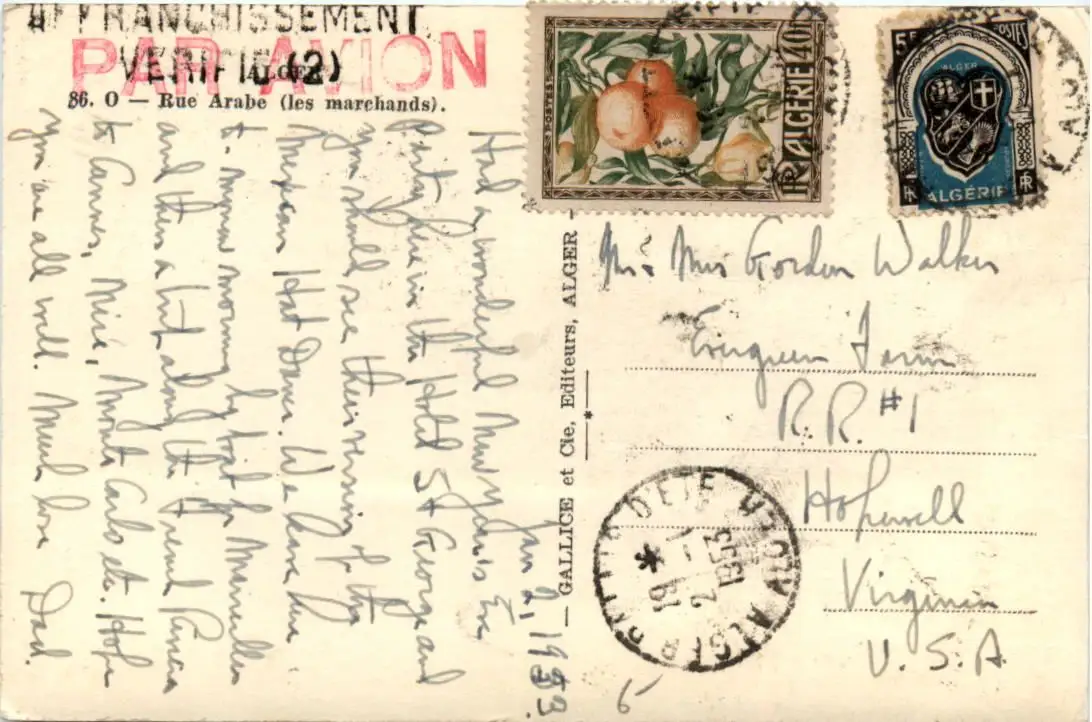 AFFRANCHISSEMENT
VERIFIE (2)
PAR AVION
ALGER
86. O — Rue Arabe (les marchands).
Jan 2, 1953.
Had a wonderful New Year's Eve
Party here in the Hotel St George and
you should see their version of the
Mexican Hat Dance. We leave here
to-morrow morning by boat for Marseilles
and then a bit along the French Riviera
to Cannes, Nice, Monte Carlo etc. Hope
you are all well. Much love Dad.
— GALLICE et Cie, Editeurs, ALGER —
*
POSTES
ALGERIE 40F
RF
5F POSTES
ALGER
RF ALGÉRIE RF
Mr & Mrs Gordon Walker
Evergreen Farm
R.R. #1
Hopewell
Virginia
U.S.A
ALGER
*
19
2 -1
1953
6